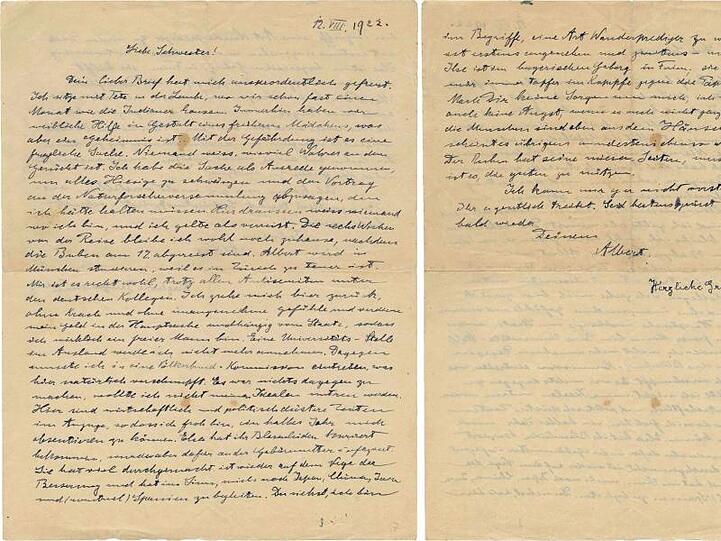 12. VIII. 1922.
Liebe Schwester!
Dein lieber Brief hat mich ausserordentlich gefreut.
Ich sitze mit Tete in der Laube, wo wir schon fast einen
Monat wie die Indianer hausen. Immerhin haben wir
weibliche Hilfe in Gestalt eines Mädchens, was
aber ein Geheimnis ist. Mit der Gefährdung ist es eine
fragliche Sache. Niemand weiss, wieviel Wahres an dem
Gerücht ist. Ich habe die Sache als Ausrede genommen,
um alles Hiesige zu schwänzen und den Vortrag
an der Naturforscherversammlung abzusagen, den
ich hätte halten müssen. Hier draussen weiss niemand
wo ich bin, und ich gelte als verreist. Die sechs Wochen
vor der Reise bleibe ich wohl noch zuhause, nachdem
die Buben am 17. abgereist sind. Albert wird in
München studieren, weil es in Zürich zu teuer ist.
Mir ist es recht wohl, trotz allen Antisemiten unter
den deutschen Kollegen. Ich ziehe mich hier zurück
ohne Krach und ohne unangenehme Gefühle und verdiene
mein Geld in der Hauptsache unabhängig vom Staate, sodass
ich wirklich ein freier Mann bin. Eine Universitäts-Stelle
im Ausland werde ich nicht mehr annehmen. Dagegen
musste ich in eine Völkerbund-Kommission eintreten, was
hier natürlich verschnupft. Es war nichts dagegen zu
machen, wollte ich nicht meinen Idealen untreu werden.
Hier sind wirtschaftlich und politisch düstere Zeiten
im Anzuge, sodass ich froh bin, ein halbes Jahr mich
absentieren zu können. Elsa hat ihr Blasenleiden kuriert
bekommen, wurde aber dafür an der Gebärmutter
Sie hat viel durchgemacht ist wieder auf dem Wege der
Besserung und hat im Sinn, mich nach Japan, China, Java
und (eventuel) Spanien zu begleiten. Du siehst, ich bin
im Begriffe, eine Art Wanderprediger zu
ist erstens angenehm und zweitens
Ilse ist im bayerischen Gebirg in Ferien, sie
immer tapfer im Kampfe gegen die
Mach Dir keine Sorgen um mich,
auch keine Angst, wenn es auch nicht
die Menschen sind eben aus dem Häusch
scheints übrigens mindestens
Der Ruhm hat seine miesen Seiten,
ist es, die guten zu nützen.
Ich kann mir gar nicht
Ihr eigentlich steckt. Seid herzlich gegrüsst
bald wieder
Deinem
Albert.
Herzliche Gr